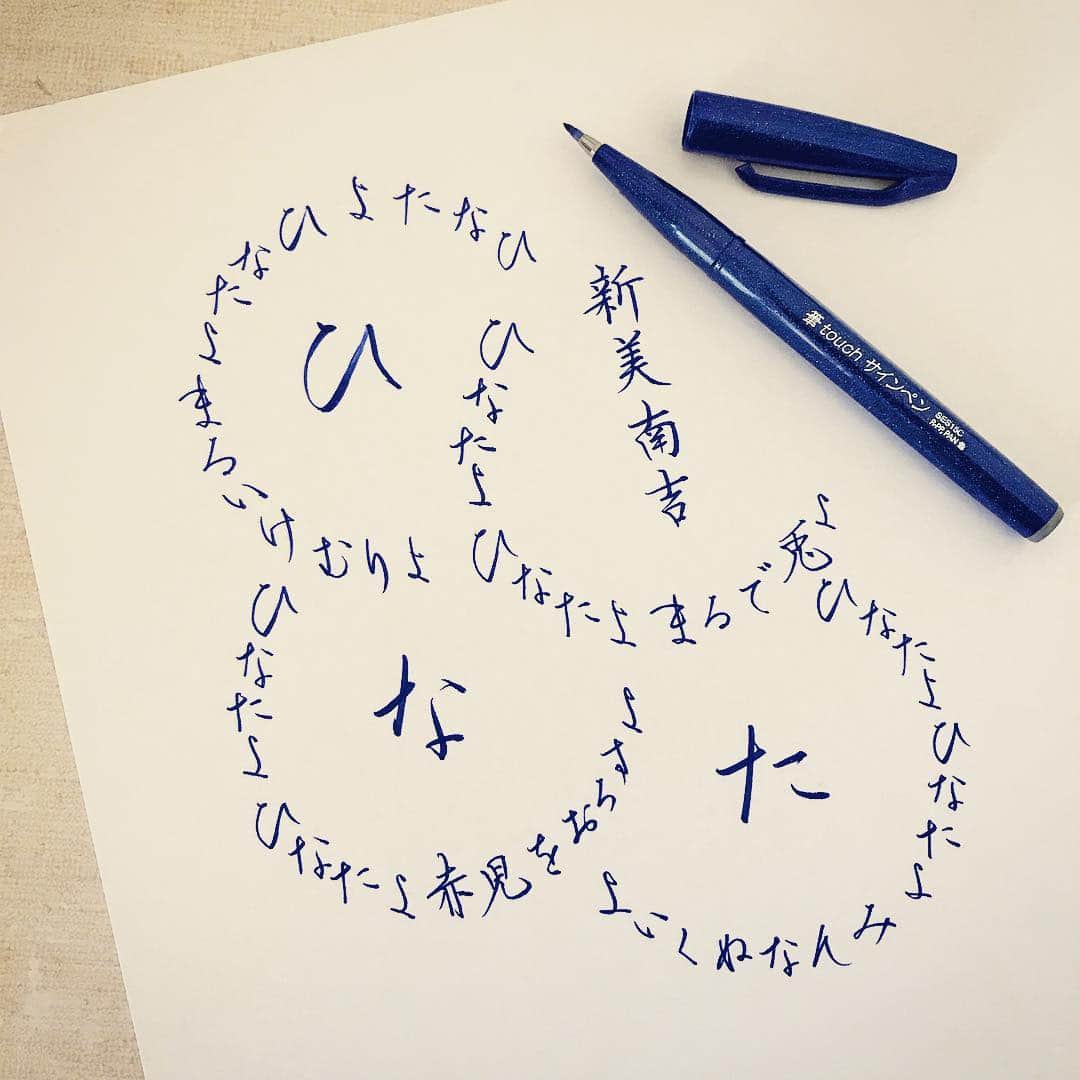 新美南吉
ひ
な
た
ひなたよひなたよまろいけむりよ
ひなたよひなたよまるで兎よ
ひなたよひなたよ赤児をおろすよ
ひなたよひなたよみんなぬくいよ
筆touch サインペン
SES15C